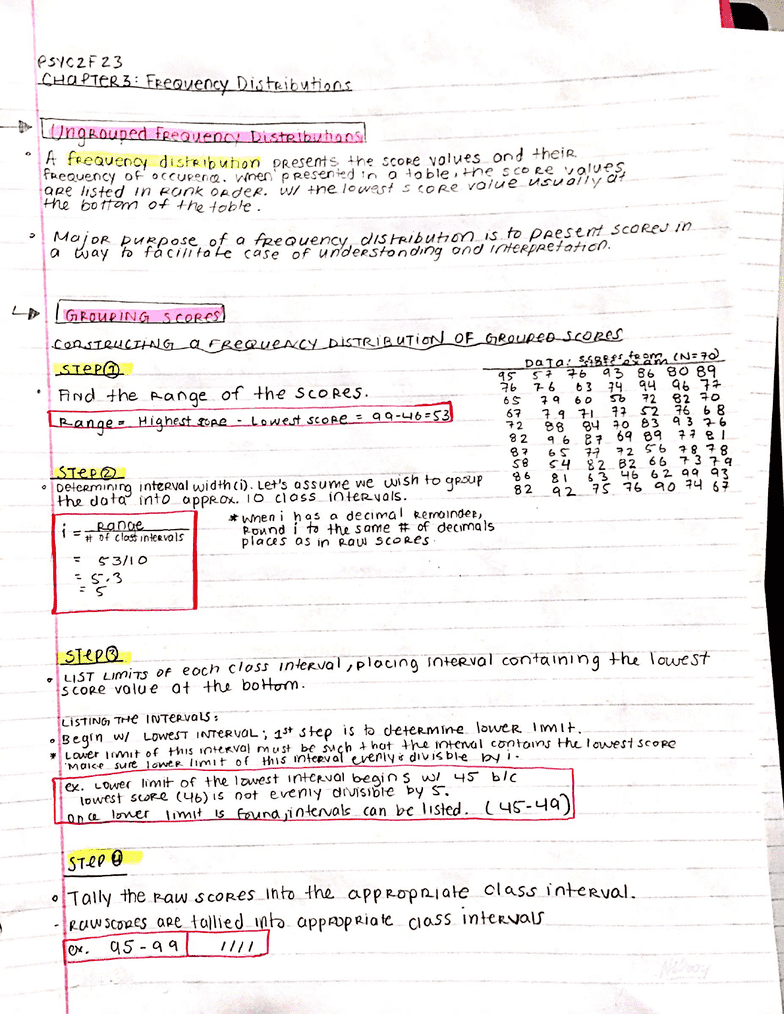 PSYC2F23
CHAPTER 3: Frequency Distributions
Ungrouped Frequency Distributions
A frequency distribution presents the score values and their
frequency of occurence. When presented in a table, the score values
are listed in rank order. w/ the lowest score value usually at
the bottom of the table.
Major purpose of a frequency distribution is to present scores in
a way to facilitate case of understanding and interpretation.
GROUPING SCORES
CONSTRUCTING a FREQUENCY DISTRIBUTION OF GROUPED SCORES
STEP ①
Find the range of the scores.
Range = Highest score - Lowest score = 99-46=53
DATA: (N=70)
95 57 76 93 86 80 89
76 76 63 74 94 96 77
65 79 60 56 72 82 70
67 79 71 77 52 76 68
72 88 84 70 83 93 76
82 96 87 69 89 77 81
87 65 77 72 56 78 78
58 54 82 82 66 73 79
86 81 63 46 62 99 93
82 92 75 76 90 74 67
STEP ②
Determining interval width (i). Let's assume we wish to group
the data into approx. 10 class intervals.
i = Range
# of class intervals
= 53/10
= 5.3
= 5
*when i has a decimal remainder,
round i to the same # of decimals
places as in raw scores.
STEP ③
LIST LIMITS of each class interval, placing interval containing the lowest
score value at the bottom.
LISTING THE INTERVALS:
Begin w/ LOWEST INTERVAL; 1st step is to determine lower limit.
* Lower limit of this interval must be such that the interval contains the lowest score
make sure lower limit of this interval evenly is divisible by i.
ex. Lower limit of the lowest interval begins w/ 45 b/c
lowest score (46) is not evenly divisible by 5.
once lower limit is found, intervals can be listed. (45-49)
STEP ④
Tally the raw scores into the appropriate class interval.
- Raw scores are tallied into appropriate class intervals
ex. 95-99 | ////